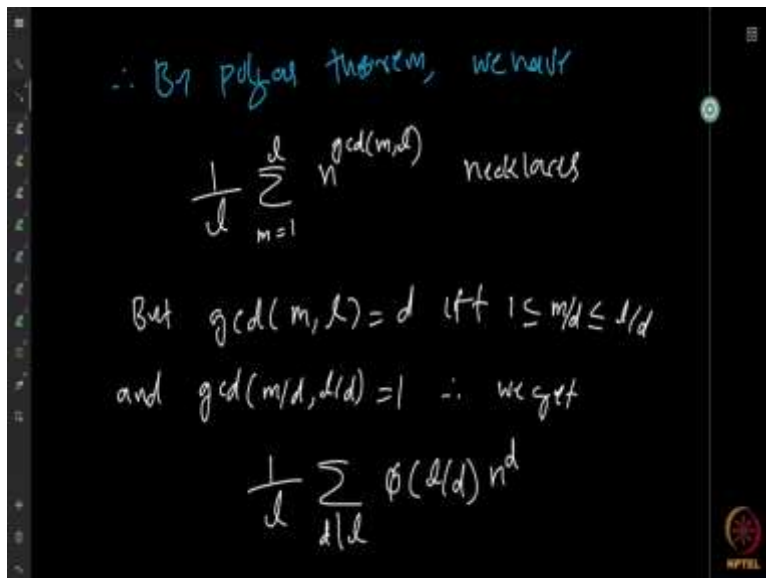 ∴ By polyas theorem, we have
1/l ∑_{m=1}^{l} n^{gcd(m,l)} necklaces
But gcd(m, l) = d iff 1 ≤ m/d ≤ l/d
and gcd(m/d, l/d) = 1 ∴ we get
1/l ∑_{d|l} φ(l/d) n^d
NPTEL